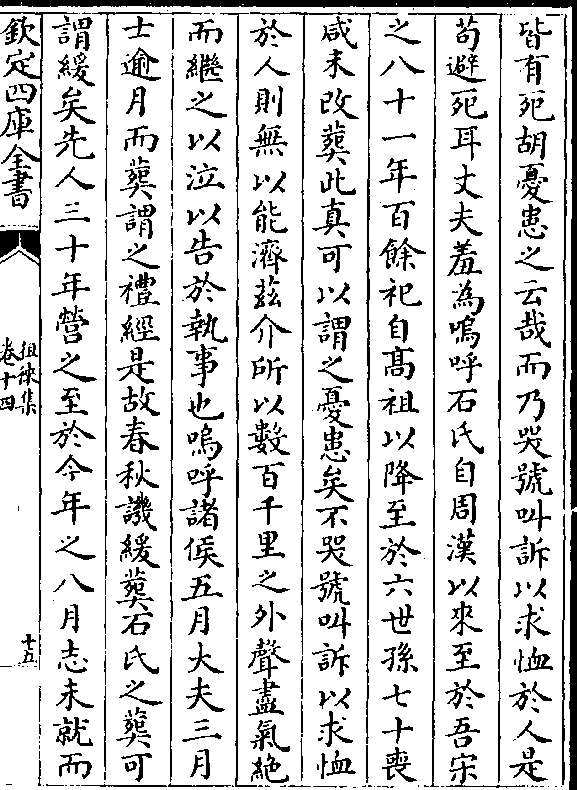 皆有死胡憂患之云哉而乃哭號叫訴以求恤於人是
苟避死耳丈夫羞為嗚呼石氏自周漢以來至於吾宋
之八十一年百餘祀自髙祖以降至於六世孫七十喪
咸未改葬此真可以謂之憂患矣不哭號叫訴以求恤
於人則無以能濟兹介所以數百千里之外聲盡氣絶
而繼之以泣以告於執事也嗚呼諸侯五月大夫三月
士逾月而葬謂之禮經是故春秋譏緩葬石氏之葬可
謂緩矣先人三十年營之至於今年之八月志未就而
欽定四庫全書
徂徠集
卷十四
十五